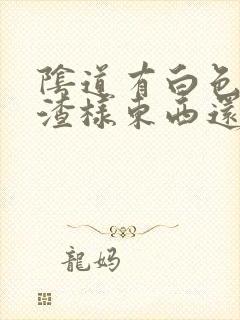 陰道有白色
渣樣東西還
龍妈